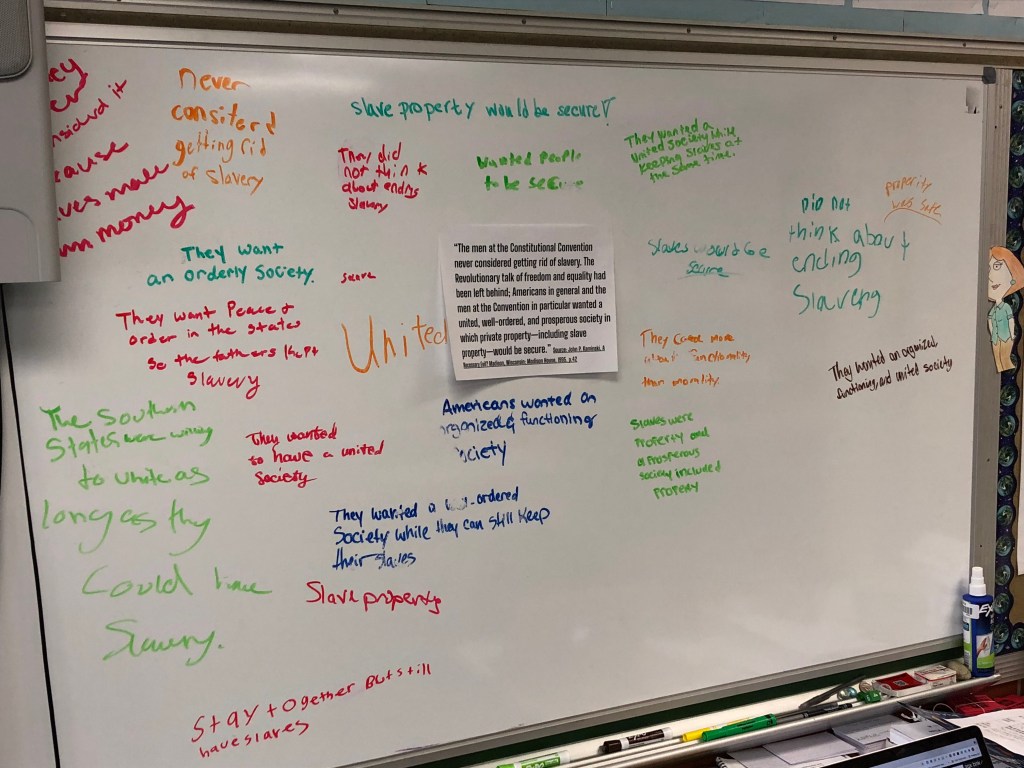 never
consiterd
getting rid
of slavery
slave property would be secure!
They did
not think
about ending
slavery
wanted people
to be secure
They wanted a
united society while
keeping slaves at
the same time.
nsidered it
cause
ves make
money
They want
an orderly society.
secure
"The men at the Constitutional Convention
never considered getting rid of slavery. The
Revolutionary talk of freedom and equality had
been left behind; Americans in general and the
men at the Convention in particular wanted a
united, well-ordered, and prosperous society in
which private property—including slave
property—would be secure." Source: John P. Kaminski, A
Necessary Evil? Madison, Wisconsin: Madison House, 1995, p.42
Slaves would be
secure
Did not
think about
ending
Slaveng
properity
was safe
They want Peace &
order in the states
so the fathers kept
slavery
United
They cared more
about functionality
than morality.
They wanted an organized,
functioning, and united society
The Southern
States were willing
to unite as
long as they
could have
Slavery.
They wanted
to have a united
society
Americans wanted an
organized & functioning
society
Slaves were
property and
a prosperous
society included
property
They wanted a well-ordered
Society while they can still keep
their slaves
Slave property
Stay together But still
have slaves
EX